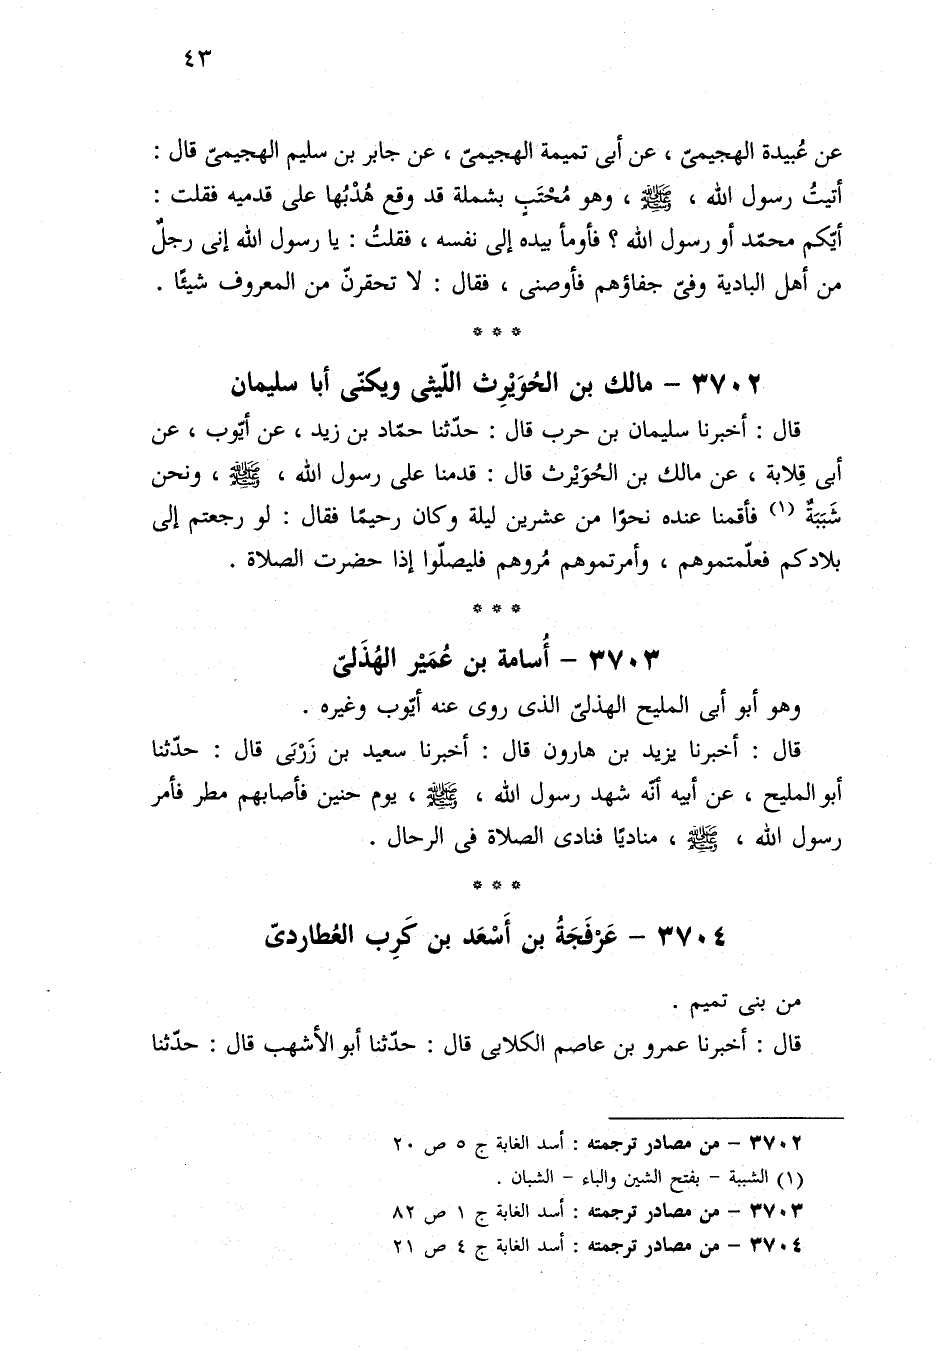 ٤٣
عن عُبيدة الهجيمىّ ، عن أبى تميمة الهجيمىّ ، عن جابر بن سليم الهجيمىّ قال :
أتيتُ رسول الله ، ﷺ ، وهو مُحْتَبٍ بشملة قد وقع هُدْبُها على قدميه فقلت :
أيّكم محمّد أو رسول الله ؟ فأومأ بيده إلى نفسه ، فقلتُ : يا رسول الله إنى رجلٌ
من أهل البادية وفىّ جفاؤهم فأوصنى ، فقال : لا تحقرنّ من المعروف شيئًا .
* * *
٣٧٠٢ – مالك بن الحُوَيْرِث اللّيثى ويكنّى أبا سليمان
قال : أخبرنا سليمان بن حرب قال : حدّثنا حمّاد بن زيد ، عن أيّوب ، عن
أبى قِلابة ، عن مالك بن الحُوَيْرث قال : قدمنا على رسول الله ، ﷺ ، ونحن
شَبَبَةٌ (١) فأقمنا عنده نحوًا من عشرين ليلة وكان رحيمًا فقال : لو رجعتم إلى
بلادكم فعلّمتموهم ، وأمرتموهم مُروهم فليصلّوا إذا حضرت الصلاة .
* * *
٣٧٠٣ – أُسامة بن عُمَيْر الهُذَلىّ
وهو أبو أبى المليح الهذلىّ الذى روى عنه أيّوب وغيره .
قال : أخبرنا يزيد بن هارون قال : أخبرنا سعيد بن زَرْبَى قال : حدّثنا
أبو المليح ، عن أبيه أنّه شهد رسول الله ، ﷺ ، يوم حنين فأصابهم مطر فأمر
رسول الله ، ﷺ ، مناديًا فنادى الصلاة فى الرحال .
* * *
٣٧٠٤ – عَرْفَجَةُ بن أَسْعَد بن كَرِب العُطاردىّ
من بنى تميم .
قال : أخبرنا عمرو بن عاصم الكلابى قال : حدّثنا أبو الأشهب قال : حدّثنا
٣٧٠٢ – من مصادر ترجمته : أسد الغابة ج ٥ ص ٢٠
(١) الشببة – بفتح الشين والباء – الشبان .
٣٧٠٣ – من مصادر ترجمته : أسد الغابة ج ١ ص ٨٢
٣٧٠٤ – من مصادر ترجمته : أسد الغابة ج ٤ ص ٢١